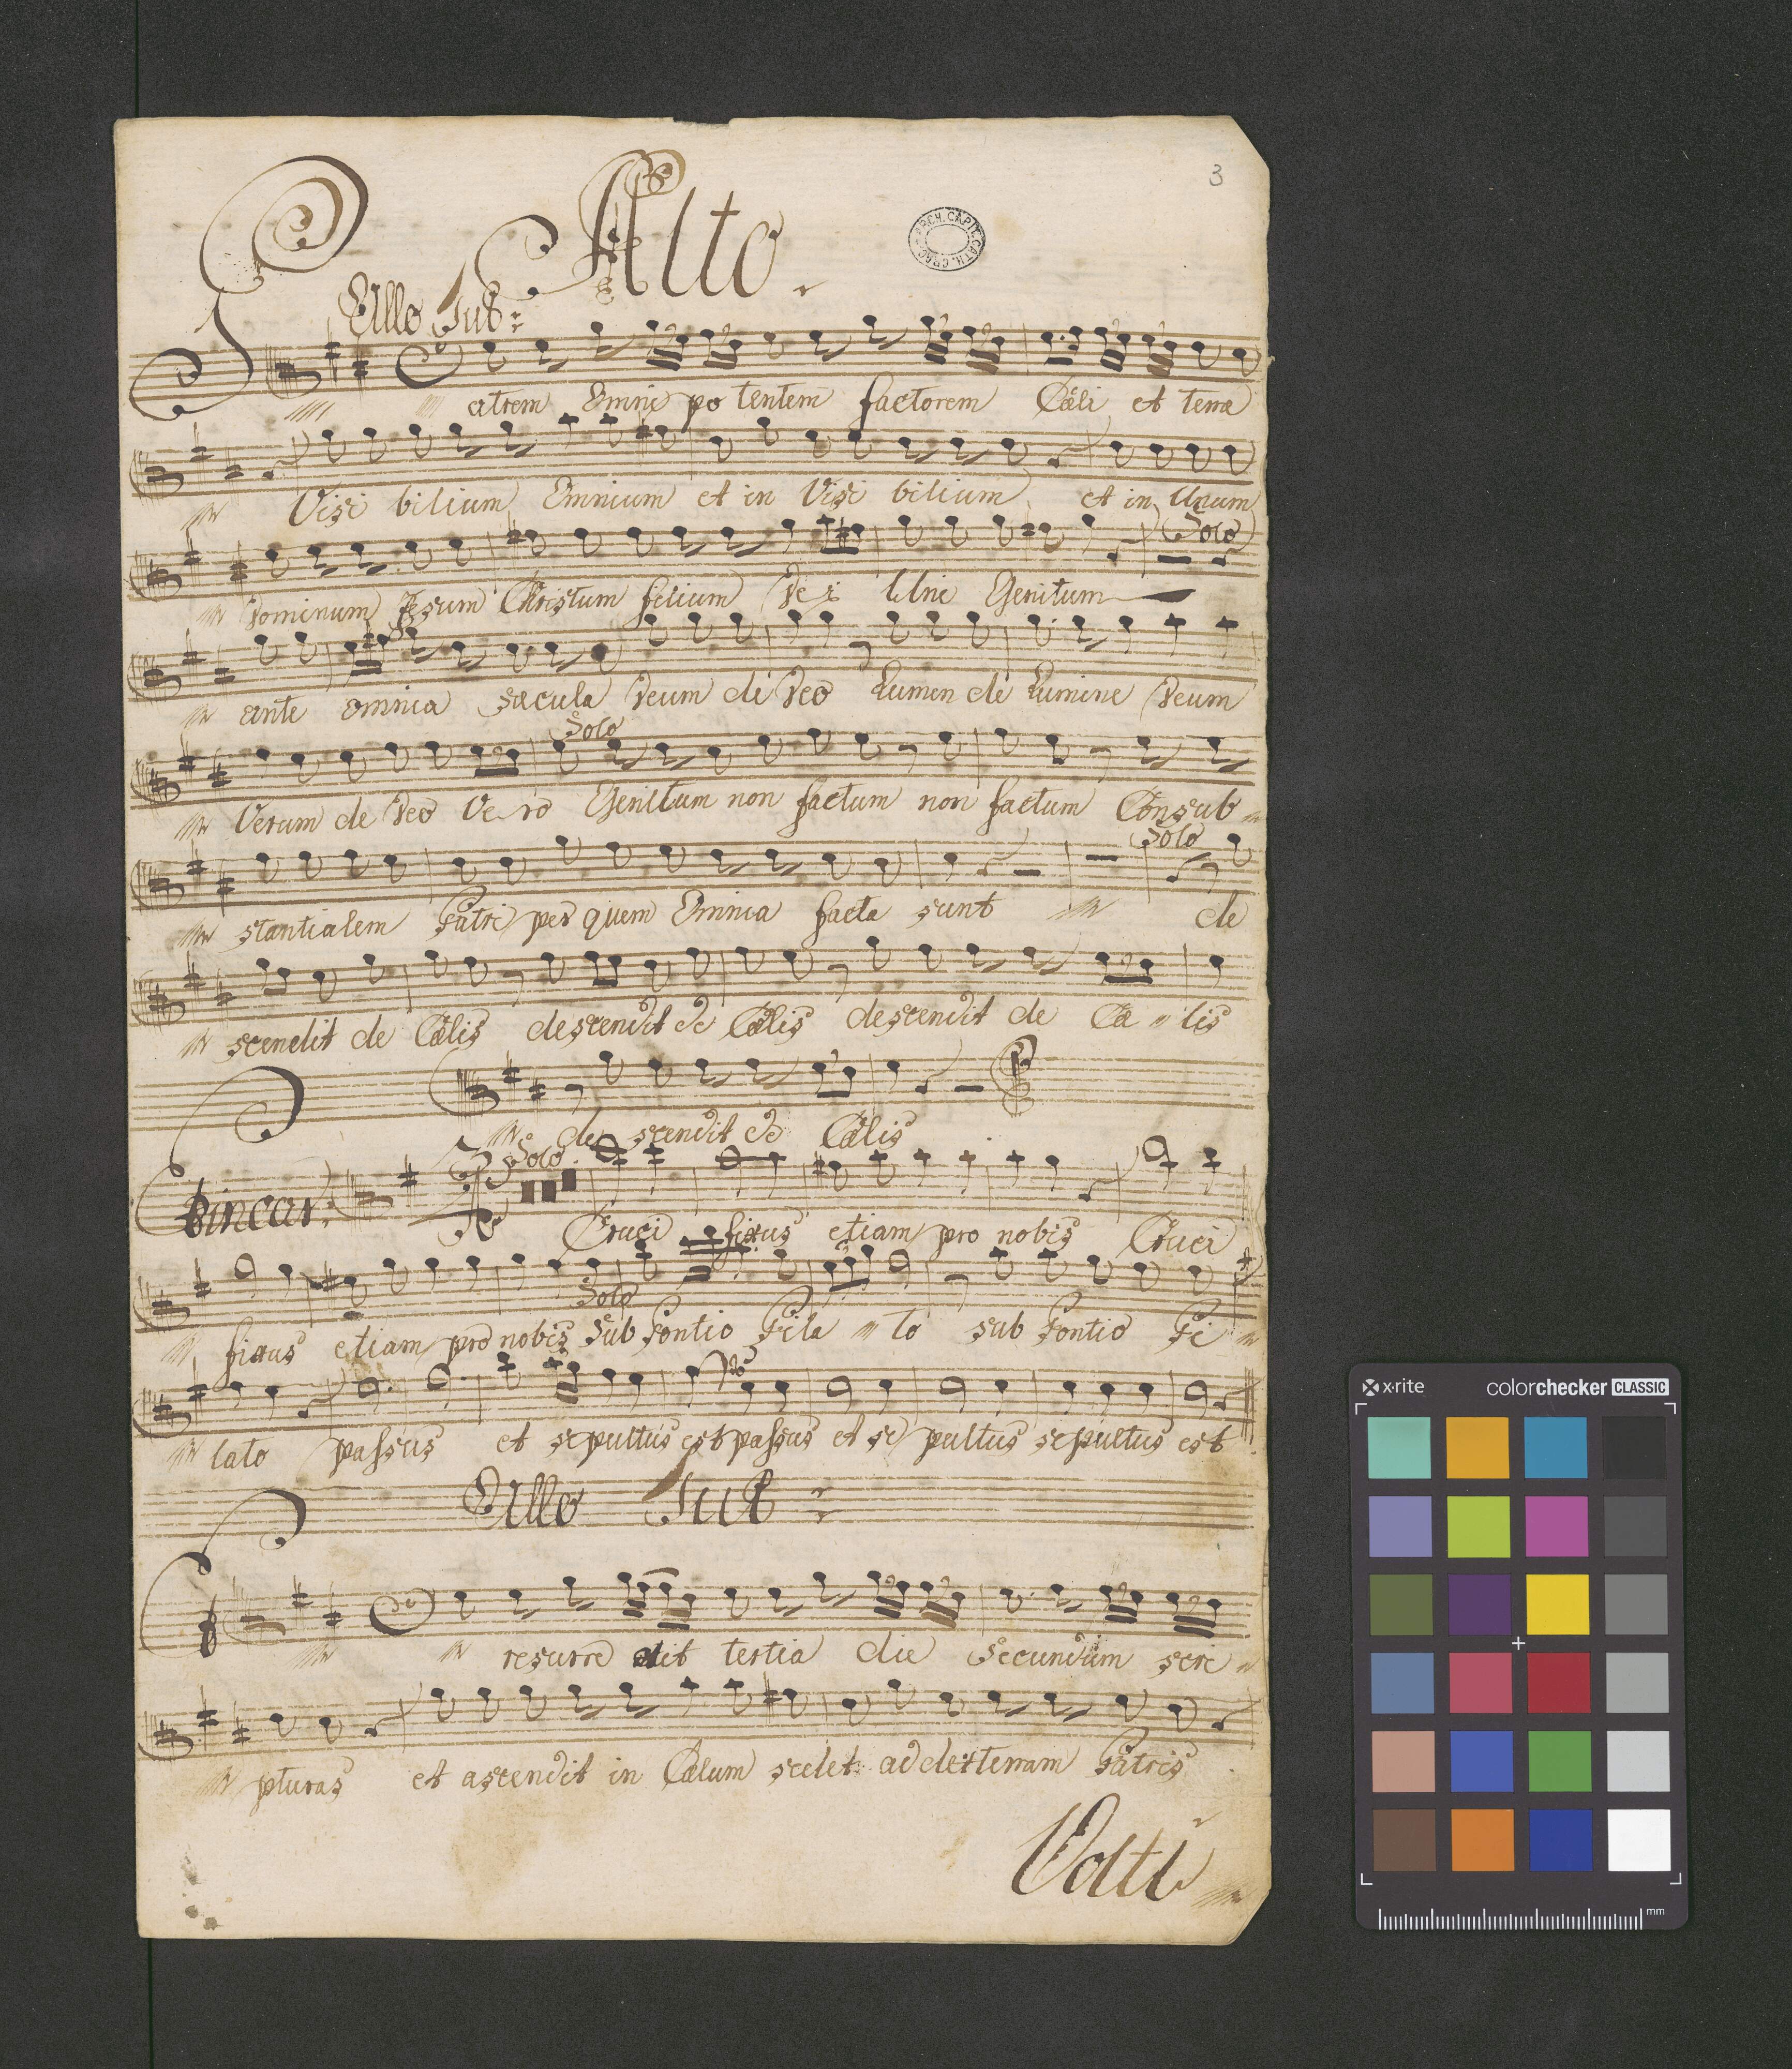 3
Alto.
ARCH. CAPIT. CATH. CRAC.
Allo
Patrem Omni po tentem factorem Cœli et terræ
Visi bilium Omnium et in Visi bilium et in Unum
Solo
Dominum Jesum Christum filium De i Uni Genitum
ante omnia sæcula Deum de Deo Lumen de Lumine Deum
Solo
Verum de Deo Ve ro Genitum non factum non factum Consub
Solo
stantialem Patri per quem Omnia facta sunt de
scendit de Cœlis descendit de Cœlis descendit de Cœ lis
de scendit de Cœlis
Solo
Cruci fixus etiam pro nobis Cruci
Solo
fixus etiam pro nobis Sub Pontio Pila to sub Pontio Pi
lato passus et sepultus est passus et se pultus sepultus est
Allo
resurre xit tertia die Secundum scri
pturas et ascendit in Cœlum sedet ad dexterram Patris
Volti
x-rite
colorchecker CLASSIC
mm